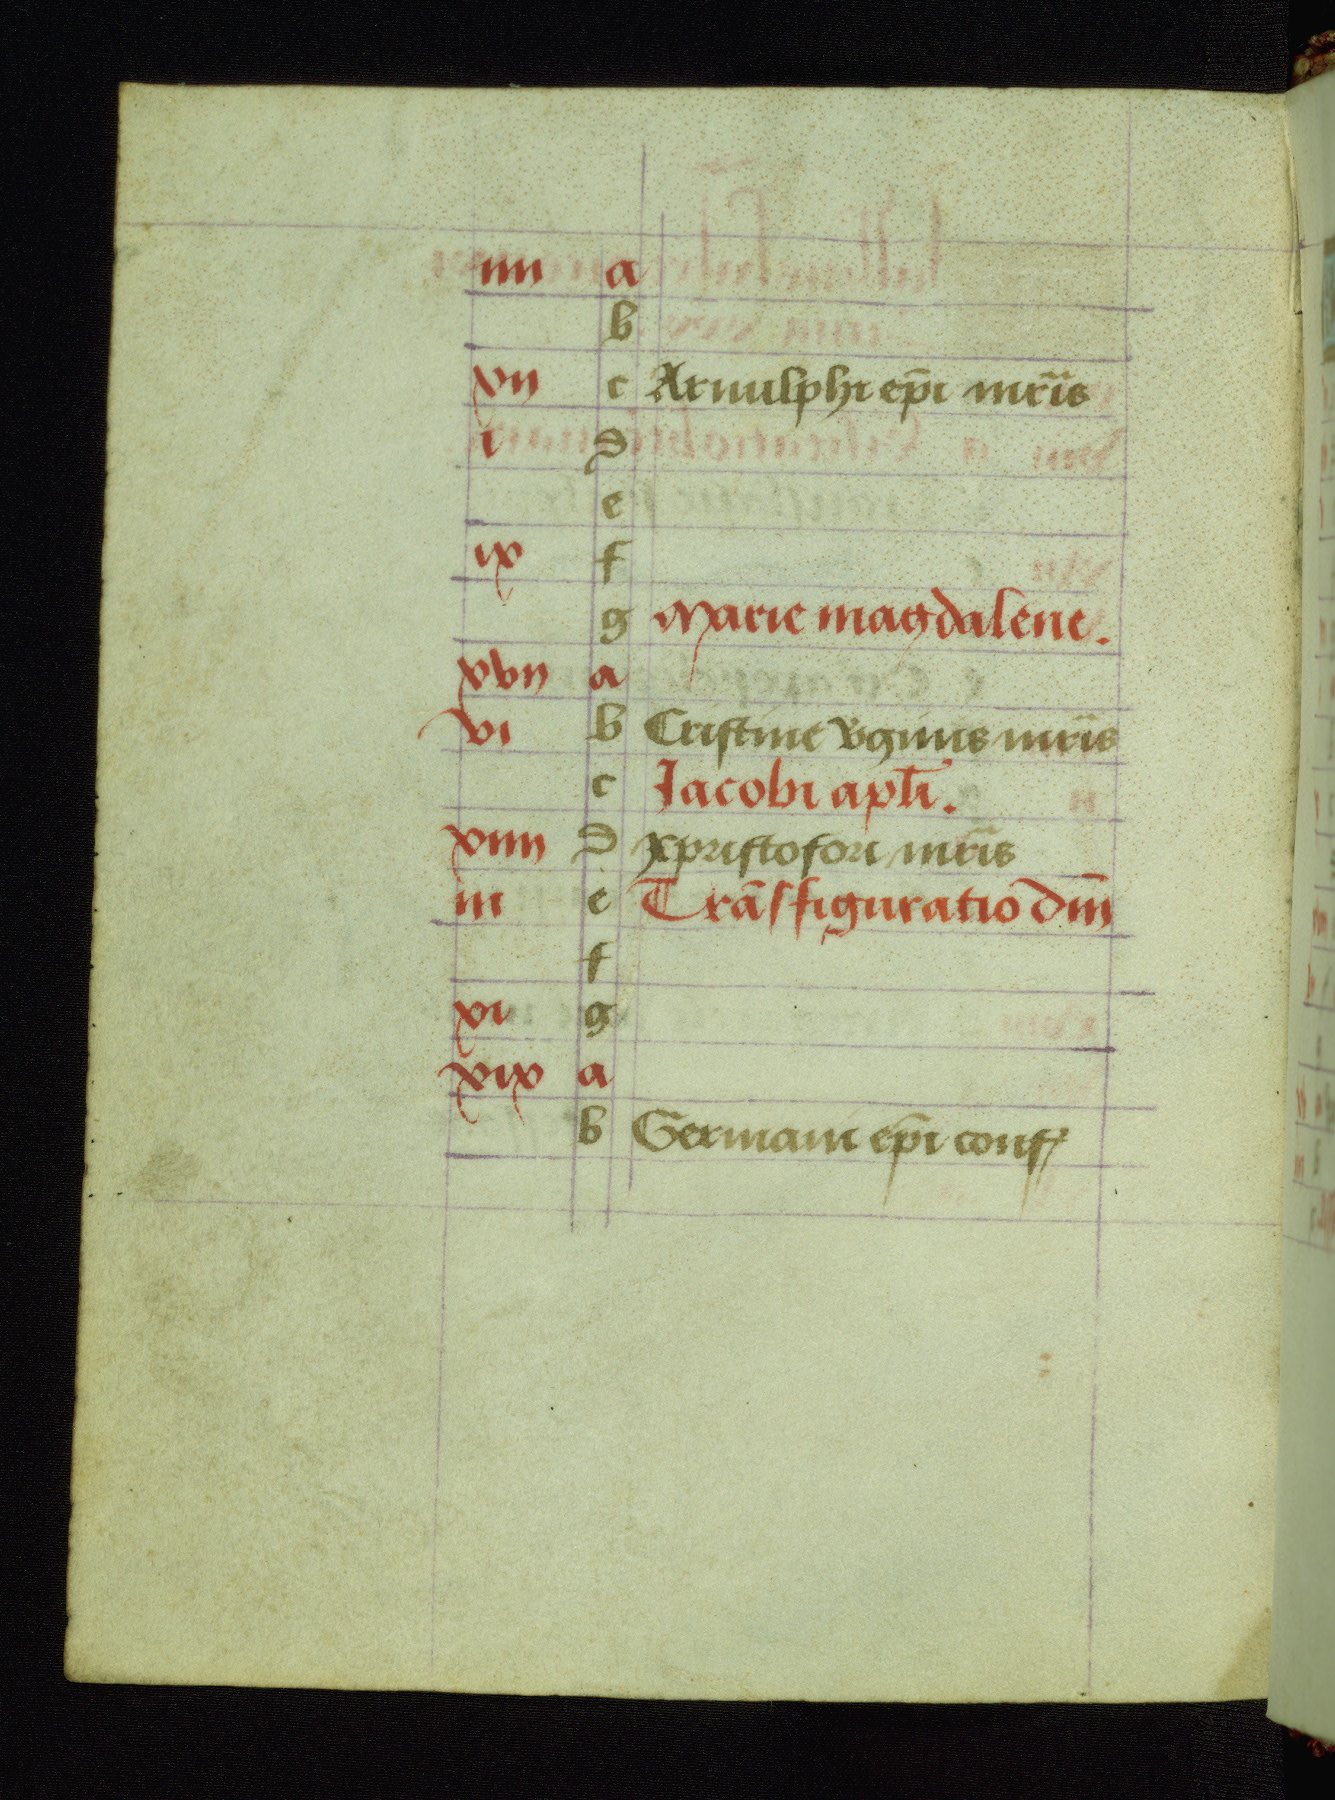 iiii a
b
vii c Arnulphi ep̄i mr̄is
i d
e
ix f
g Marie magdalene.
xvii a
vi b Cristine v̄ginis mr̄is
c Jacobi apl̄i.
xiiii d xpristofori mr̄is
iii e Trāsfiguratio dn̄i
f
xi g
xix a
b Germani ep̄i conf